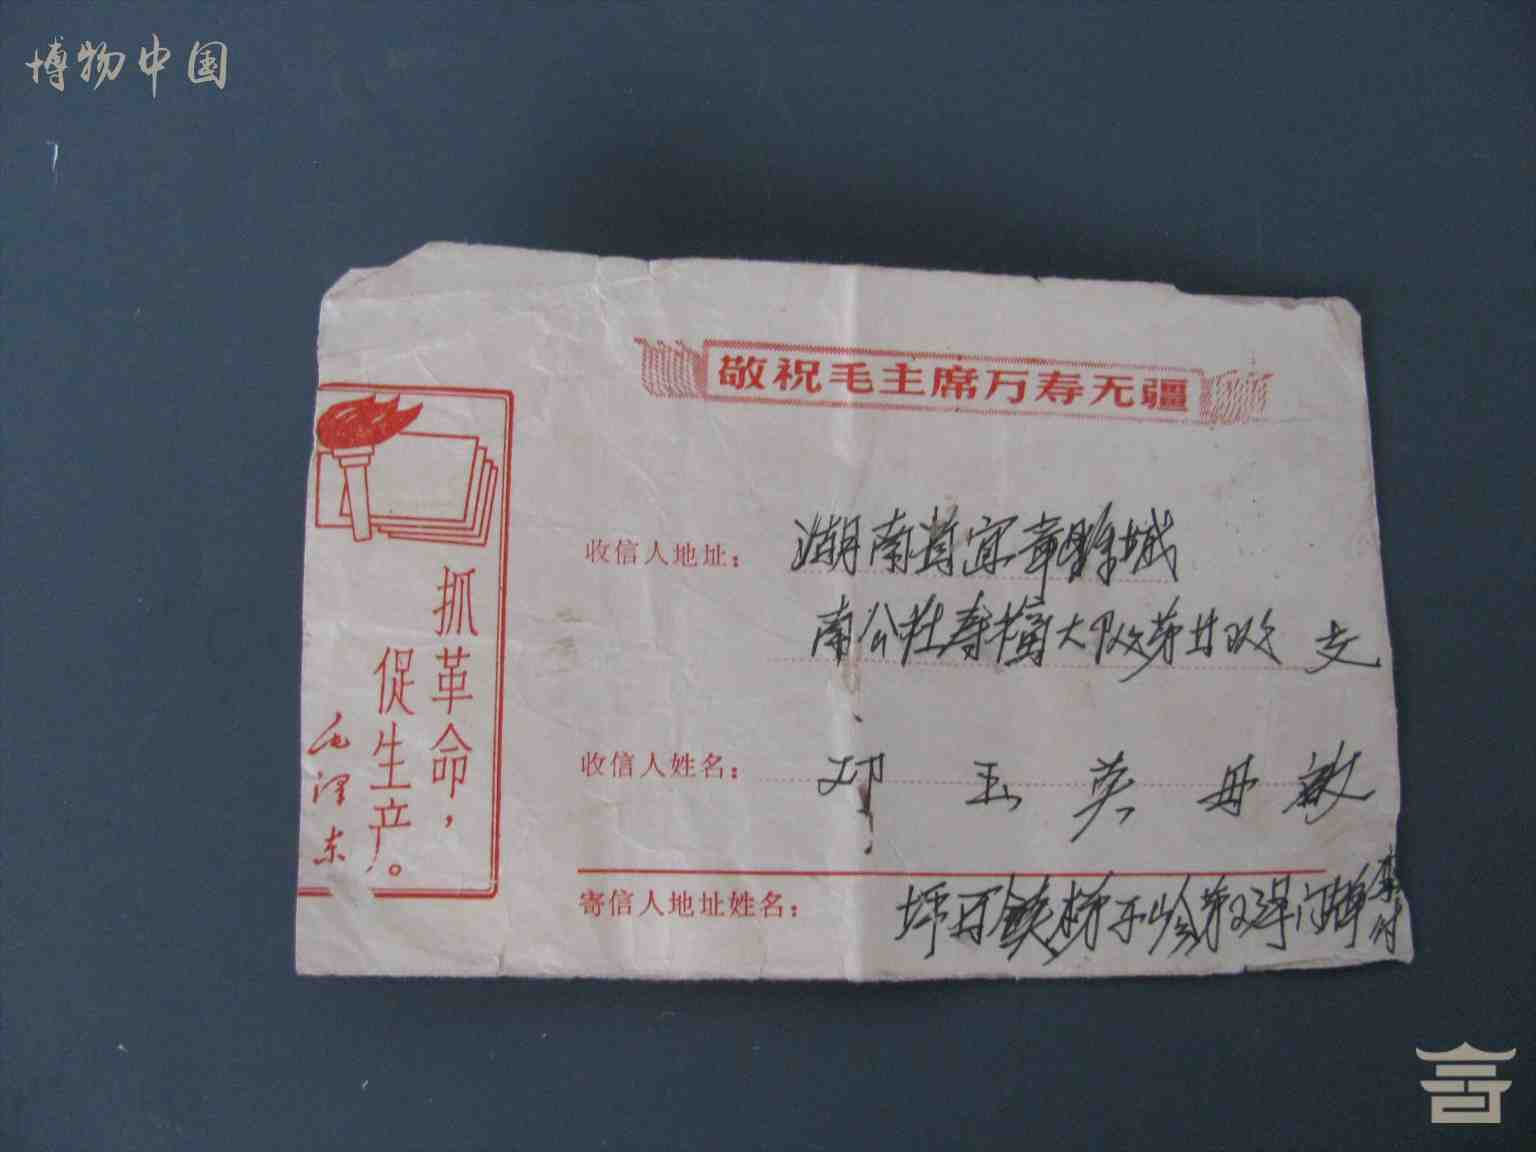 博物中国
敬祝毛主席万寿无疆
抓革命，
促生产。
毛泽东
收信人地址：湖南省宜章县城
南公社寿福大队第廿队 交
收信人姓名：邓玉英母敬
寄信人地址姓名：坪石镇梯子岭第23号门牌